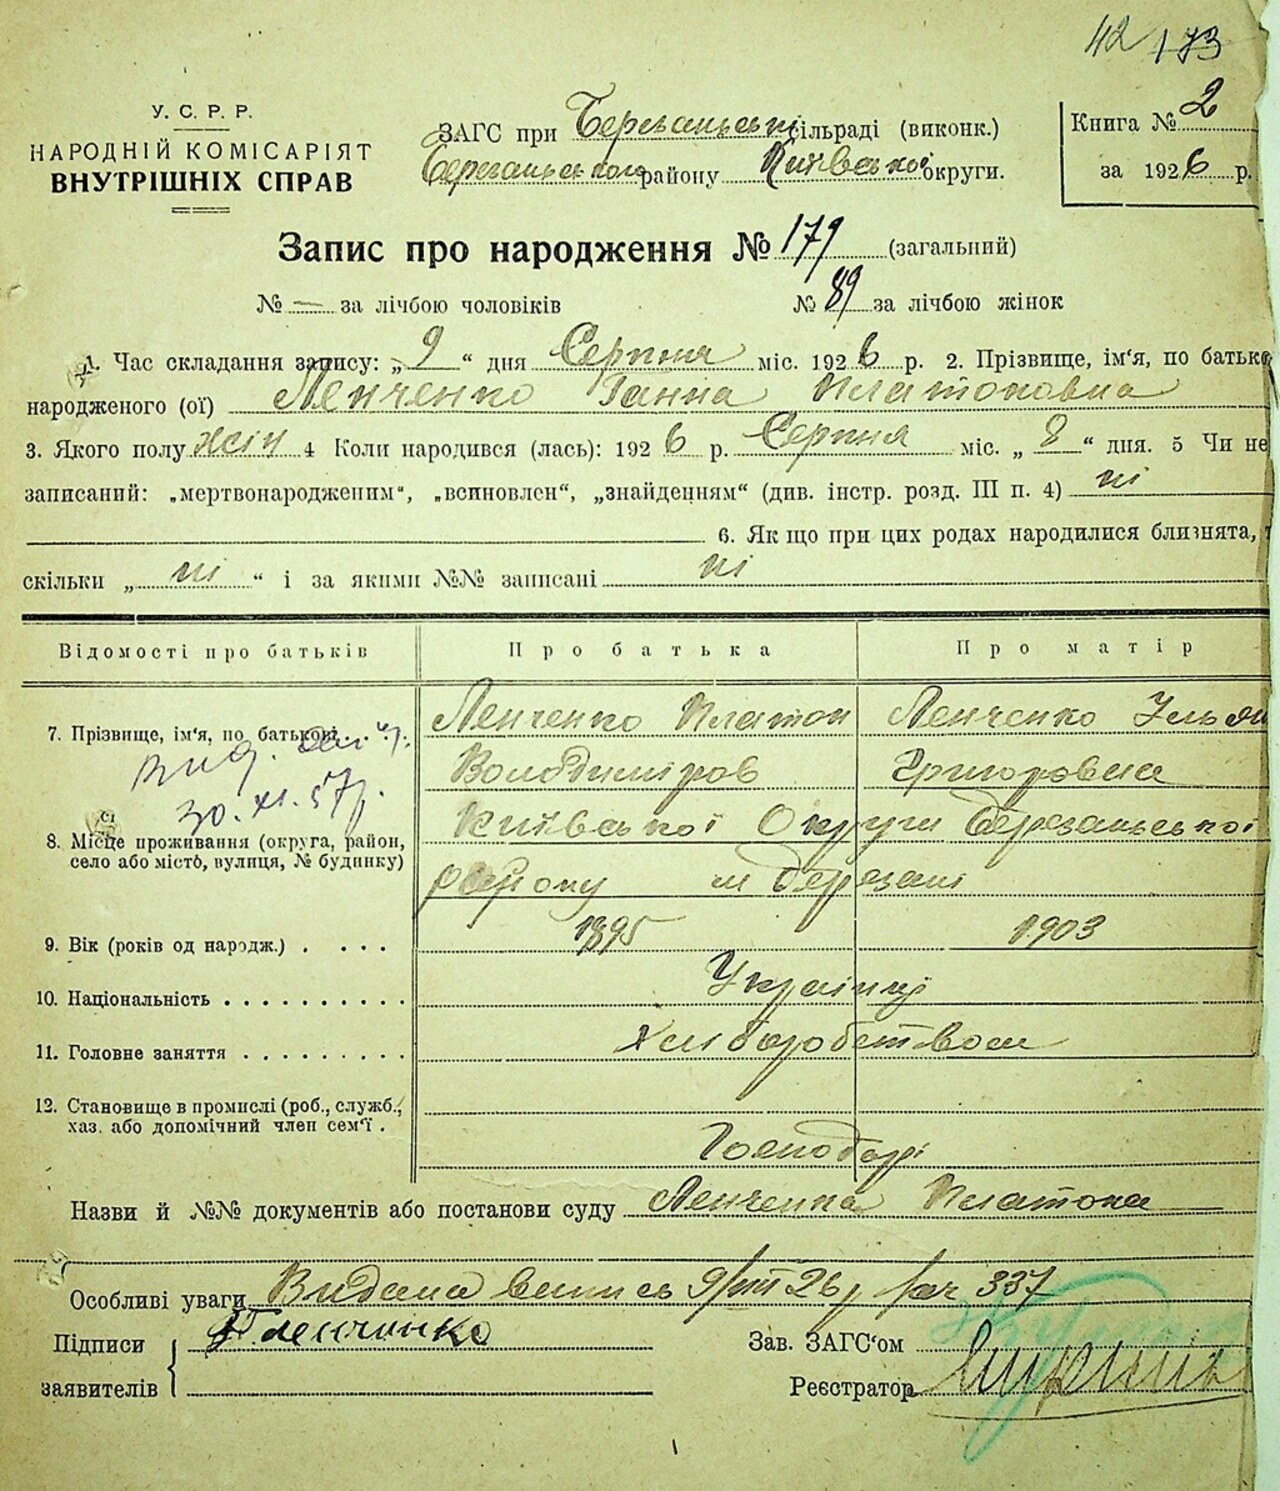 42 173
У. С. Р. Р.
НАРОДНІЙ КОМІСАРІЯТ
ВНУТРІШНІХ СПРАВ
ЗАГС при Березанській сільраді (виконк.)
Березанського району Київської округи.
Книга № 2
за 1926 р.
Запис про народження № 179 (загальний)
№ — за лічбою чоловіків № 89 за лічбою жінок
1. Час складання запису: „ 9 “ дня Серпня міс. 1926 р. 2. Прізвище, ім'я, по батько
народженого (ої) Ленченко Ганна Платоновна
3. Якого полу жін 4 Коли народився (лась): 1926 р. Серпня міс. „ 8 “ дня. 5 Чи не
записаний: „мертвонародженим“, „всиновлен“, „знайденням“ (див. інстр. розд. III п. 4) ні
6. Як що при цих родах народилися близнята,
скільки „ ні “ і за якими №№ записані ні
Відомості про батьків Про батька Про матір
7. Прізвище, ім'я, по батькові . . .
Ленченко Платон Ленченко Ульян
Володиміров Григоровна
30. XI. 57р.
8. Місце проживання (округа, район,
село або місто, вулиця, № будинку)
Київської Округи Березанської
району м Березані
9. Вік (років од народж.) . . . . 1895 1903
10. Національність . . . . . . . . . . Українці
11. Головне заняття . . . . . . . . . Хліборобством
12. Становище в промислі (роб., служб.,
хаз. або допомічний член сем'ї .
Господарі
Назви й №№ документів або постанови суду Ленченка Платона
Особливі уваги Видана випись 9/VIII 26р 337
Підписи П. Ленченко Зав. ЗАГС'ом
заявителів Реєстратор